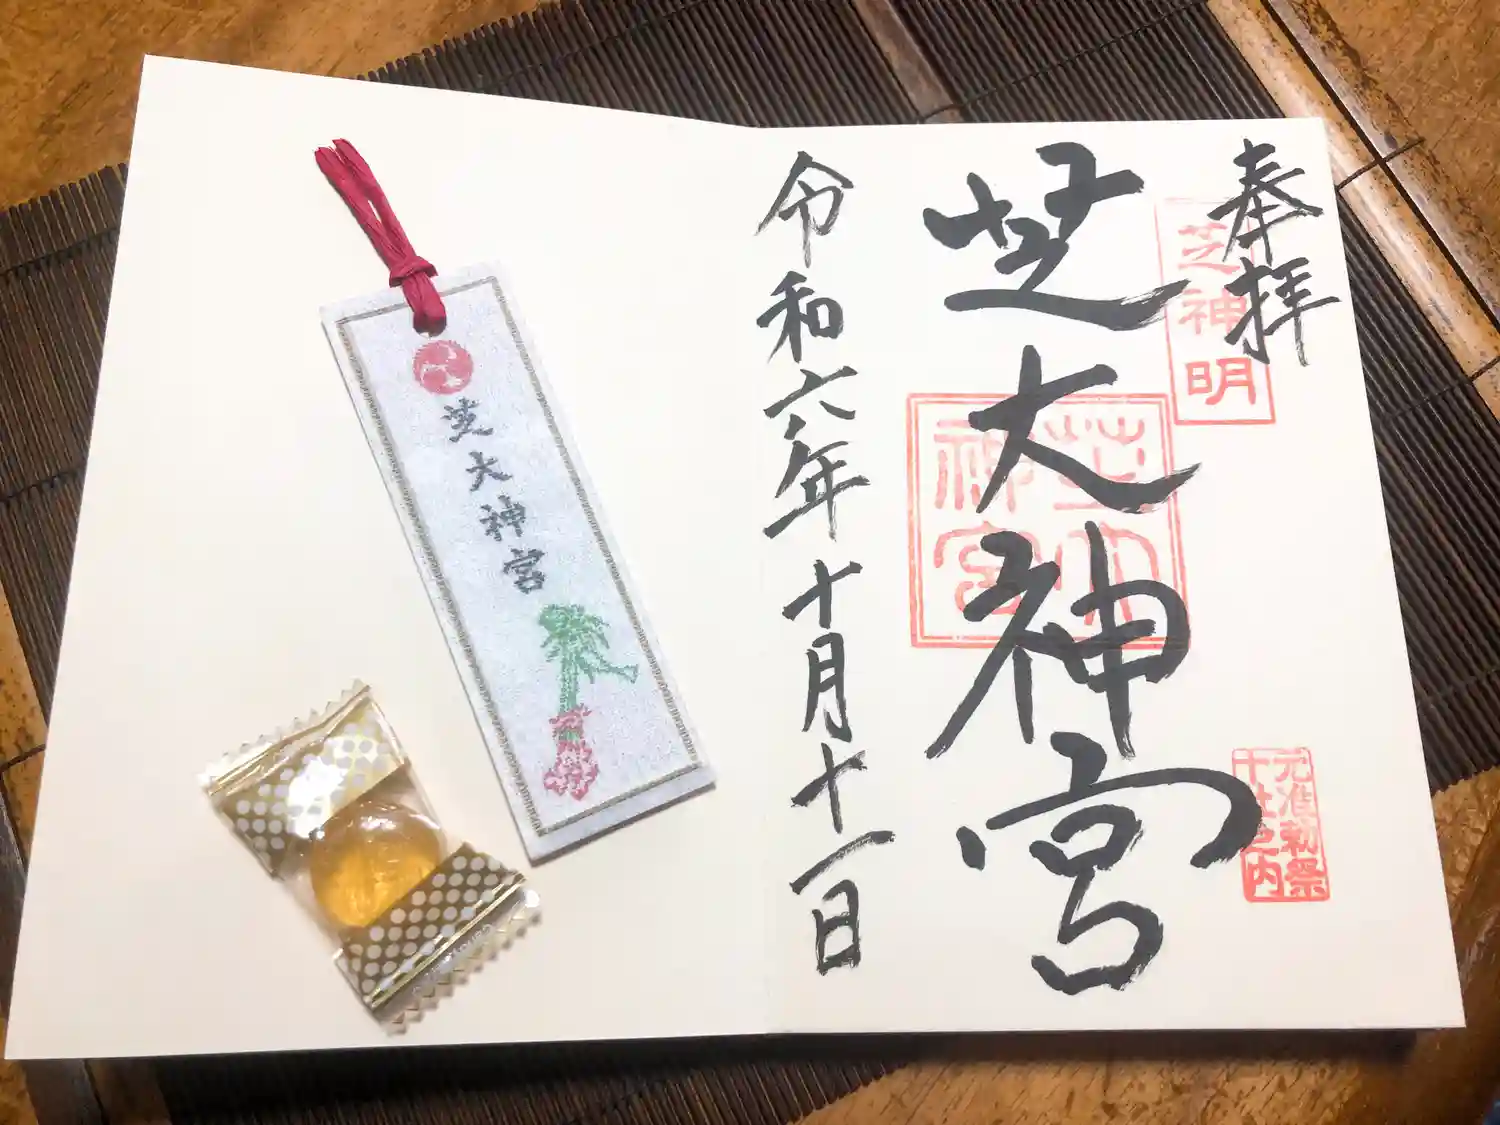 奉拝
芝神明
芝大神宮
芝大神宮
元准勅祭
十社之内
令和六年十月十一日
芝大神宮